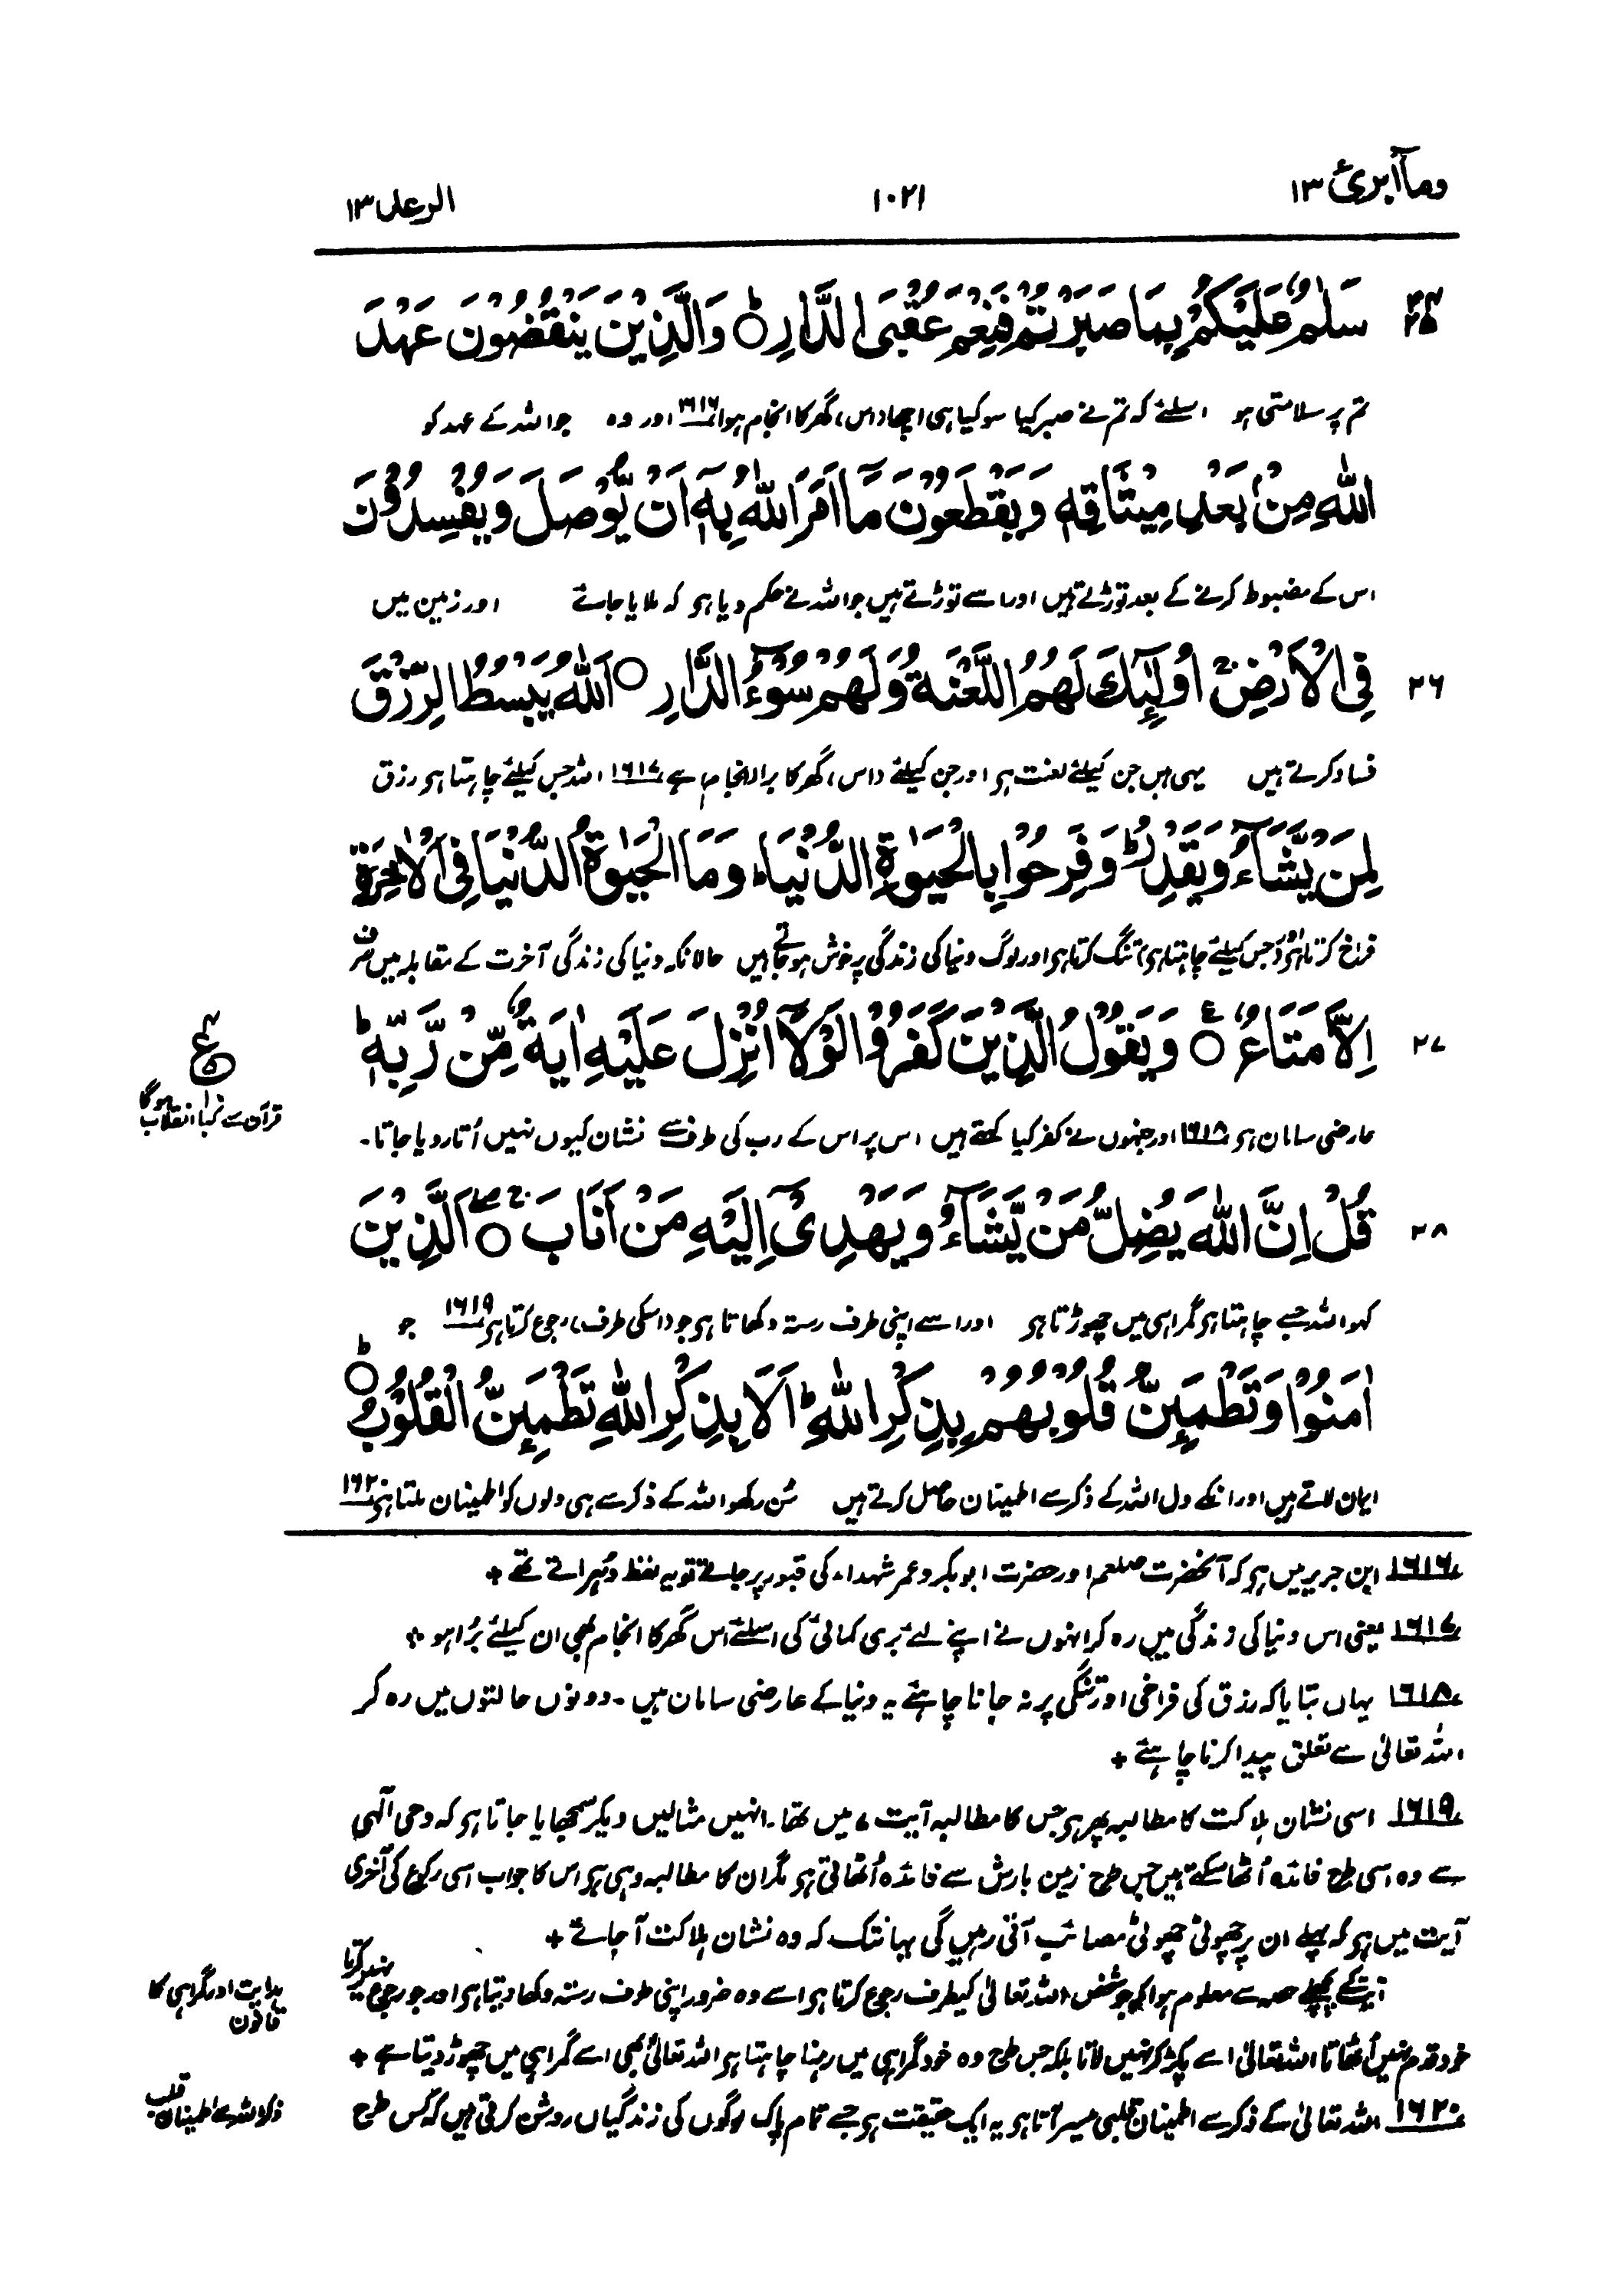 ومآ أبرئ ١٣
١٠٢١
الرعد ١٣
٢٤
٢٥
سَلٰمٌ عَلَيْكُمْ بِمَا صَبَرْتُمْ فَنِعْمَ عُقْبَى الدَّارِ ۝ؕ وَالَّذِيْنَ يَنْقُضُوْنَ عَهْدَ
تم پر سلامتی ہو اسلئے کہ تم نے صبر کیا سو کیا ہی اچھا (اس) گھر کا انجام ہوا ۱۶۱۶ اور وہ جو اللہ کے عہد کو
اللّٰهِ مِنْۢ بَعْدِ مِيْثَاقِهٖ وَيَقْطَعُوْنَ مَآ اَمَرَ اللّٰهُ بِهٖٓ اَنْ يُّوْصَلَ وَيُفْسِدُوْنَ
اس کے مضبوط کرنے کے بعد توڑتے ہیں اور اسے توڑتے ہیں جو اللہ نے حکم دیا ہو کہ ملایا جائے اور زمین میں
٢٦
فِي الْاَرْضِ ۙ اُولٰٓئِكَ لَهُمُ اللَّعْنَةُ وَلَهُمْ سُوْٓءُ الدَّارِ ۝ اَللّٰهُ يَبْسُطُ الرِّزْقَ
فساد کرتے ہیں یہی ہیں جن کیلئے لعنت ہو اور جن کیلئے (اس) گھر کا برا انجام ہے ۱۶۱۷ اللہ جس کیلئے چاہتا ہو رزق
لِمَنْ يَّشَآءُ وَيَقْدِرُ ؕ وَفَرِحُوْا بِالْحَيٰوةِ الدُّنْيَا ؕ وَمَا الْحَيٰوةُ الدُّنْيَا فِي الْاٰخِرَةِ
فراخ کرتا ہو اور (جس کیلئے چاہتا ہو) تنگ کرتا ہو اور لوگ دنیا کی زندگی پر خوش ہو جاتے ہیں حالانکہ دنیا کی زندگی آخرت کے مقابلہ میں صرف
٢٧
اِلَّا مَتَاعٌ ۝ع وَيَقُوْلُ الَّذِيْنَ كَفَرُوْا لَوْلَآ اُنْزِلَ عَلَيْهِ اٰيَةٌ مِّنْ رَّبِّهٖ ؕ
ع
قرآن سے کیا انقلاب ہوگا
عارضی سامان ہو ۱۶۱۸ اور جنہوں نے کفر کیا کہتے ہیں اس پر اس کے رب کی طرف سے نشان کیوں نہیں اُتارا دیا جاتا۔
٢٨
قُلْ اِنَّ اللّٰهَ يُضِلُّ مَنْ يَّشَآءُ وَيَهْدِيْٓ اِلَيْهِ مَنْ اَنَابَ ۝ۖۚ اَلَّذِيْنَ
کہو اللہ جسے چاہتا ہو گمراہی میں چھوڑتا ہو اور اسے اپنی طرف رستہ دکھاتا ہو جو (اسکی طرف) رجوع کرتا ہو ۱۶۱۹ جو
اٰمَنُوْا وَتَطْمَئِنُّ قُلُوْبُهُمْ بِذِكْرِ اللّٰهِ ؕ اَلَا بِذِكْرِ اللّٰهِ تَطْمَئِنُّ الْقُلُوْبُ ۝ؕ
ایمان لاتے ہیں اور انکے دل اللہ کے ذکر سے اطمینان حاصل کرتے ہیں سُن رکھو اللہ کے ذکر سے ہی دلوں کو اطمینان ملتا ہو ۱۶۲۰
۱۶۱۶ ابن جریر میں ہو کہ آنحضرت صلعم اور حضرت ابوبکر و عمر شہداء کی قبور پر جاتے تو یہ لفظ دہراتے تھے +
۱۶۱۷ یعنی اس دنیا کی زندگی میں رہ کر انہوں نے اپنے لئے بُری کمائی کی اسلئے اس گھر کا انجام بھی ان کیلئے بُرا ہو +
۱۶۱۸ یہاں بتایا کہ رزق کی فراخی اور تنگی پر نہ جانا چاہئے یہ دنیا کے عارضی سامان ہیں۔ دونوں حالتوں میں رہ کر
اللہ تعالیٰ سے تعلق پیدا کرنا چاہئے +
۱۶۱۹ اسی نشان ہلاکت کا مطالبہ پھر ہو جس کا مطالبہ آیت ۷ میں تھا۔ انہیں مثالیں دیکر سمجھایا جاتا ہو کہ وحی الٰہی
سے وہ اسی طرح فائدہ اُٹھا سکتے ہیں جس طرح زمین بارش سے فائدہ اُٹھاتی ہو مگر ان کا مطالبہ وہی ہو اس کا جواب اسی رکوع کی آخری
آیت میں ہو کہ پہلے ان پر چھوٹی چھوٹی مصائب آتی رہیں گی یہانتک کہ وہ نشان ہلاکت آجائے +
آیت کے پچھلے حصہ سے معلوم ہوا کہ جو شخص اللہ تعالیٰ کیطرف رجوع کرتا ہو اسے وہ ضرور اپنی طرف رستہ دکھا دیتا ہو اور جو رجوع نہیں کرتا
ہدایت اور گمراہی کا قانون
خود قدم نہیں اُٹھاتا اللہ تعالیٰ اسے پکڑ کر نہیں لاتا بلکہ جس طرح وہ خود گمراہی میں رہنا چاہتا ہو اللہ تعالیٰ بھی اسے گمراہی میں چھوڑ دیتا ہے +
ذکر اللہ سے اطمینان قلب
۱۶۲۰ اللہ تعالیٰ کے ذکر سے اطمینان قلبی میسر آتا ہو یہ ایک حقیقت ہو جسے تمام پاک لوگوں کی زندگیاں روشن کرتی ہیں کہ کس طرح